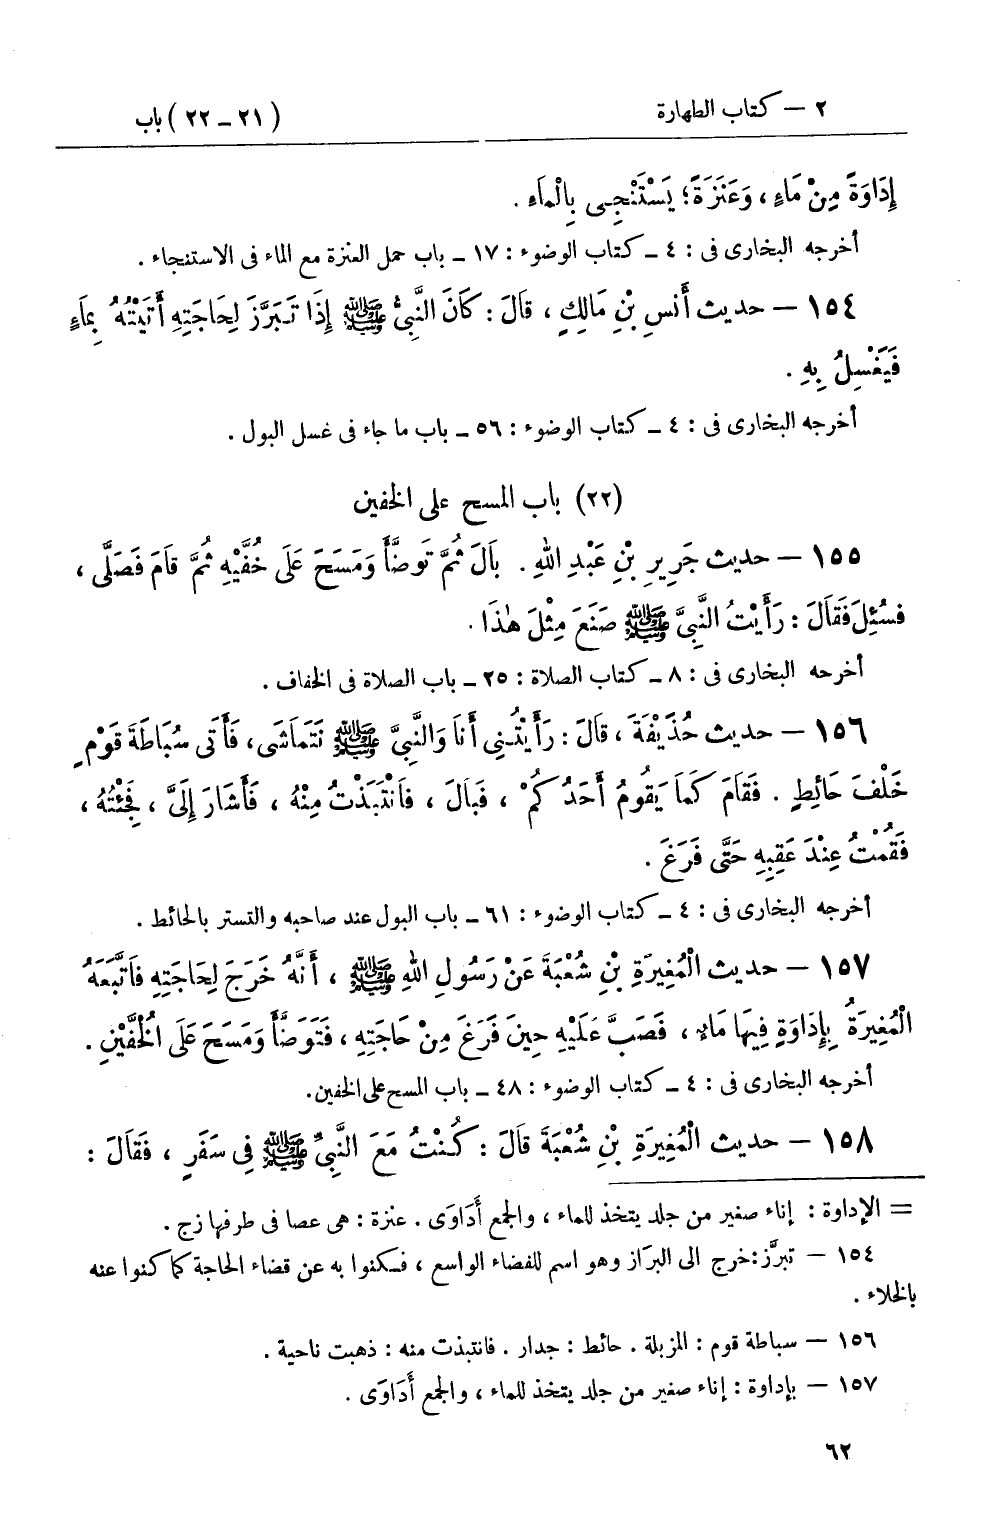 ٢ — كتاب الطهارة
(٢١ – ٢٢) باب
إِدَاوَةً مِنْ مَاءٍ ، وَعَنَزَةً؛ يَسْتَنْجِى بِالْمَاءِ .
أخرجه البخارى فى : ٤ – كتاب الوضوء : ١٧ – باب حمل العنزة مع الماء فى الاستنجاء .
١٥٤ – حديث أَنَسِ بْنِ مَالِكٍ ، قَالَ : كَانَ النَّبِىُّ ﷺ إِذَا تَبَرَّزَ لِحَاجَتِهِ أَتَيْتُهُ بِمَاءٍ
فَيَغْسِلُ بِهِ .
أخرجه البخارى فى : ٤ – كتاب الوضوء : ٥٦ – باب ما جاء فى غسل البول .
(٢٢) باب المسح على الخفين
١٥٥ – حديث جَرِيرِ بْنِ عَبْدِ اللهِ . بَالَ ثُمَّ تَوَضَّأَ وَمَسَحَ عَلَى خُفَّيْهِ ثُمَّ قَامَ فَصَلَّى ،
فَسُئِلَ فَقَالَ : رَأَيْتُ النَّبِىَّ ﷺ صَنَعَ مِثْلَ هٰذَا .
أخرحه البخارى فى : ٨ – كتاب الصلاة : ٢٥ – باب الصلاة فى الخفاف .
١٥٦ – حديث حُذَيْفَةَ ، قَالَ : رَأَيْتُنِى أَنَا وَالنَّبِىَّ ﷺ نَتَمَاشَى، فَأَتَى سُبَاطَةَ قَوْمٍ
خَلْفَ حَائِطٍ . فَقَامَ كَمَا يَقُومُ أَحَدُكُمْ ، فَبَالَ ، فَانْتَبَذْتُ مِنْهُ ، فَأَشَارَ إِلَىَّ ، فَجِئْتُهُ ،
فَقُمْتُ عِنْدَ عَقِبِهِ حَتَّى فَرَغَ .
أخرجه البخارى فى : ٤ – كتاب الوضوء : ٦١ – باب البول عند صاحبه والتستر بالحائط .
١٥٧ – حديث الْمُغِيرَةِ بْنِ شُعْبَةَ عَنْ رَسُولِ اللهِ ﷺ ، أَنَّهُ خَرَجَ لِحَاجَتِهِ فَاتَّبَعَهُ
الْمُغِيرَةُ بِإِدَاوَةٍ فِيهَا مَاءٌ ، فَصَبَّ عَلَيْهِ حِينَ فَرَغَ مِنْ حَاجَتِهِ ، فَتَوَضَّأَ وَمَسَحَ عَلَى الْخُفَّيْنِ .
أخرجه البخارى فى : ٤ – كتاب الوضوء : ٤٨ – باب المسح على الخفين.
١٥٨ – حديث الْمُغِيرَةِ بْنِ شُعْبَةَ قَالَ : كُنْتُ مَعَ النَّبِىِّ ﷺ فِى سَفَرٍ ، فَقَالَ :
= الإداوة : إناء صغير من جلد يتخذ للماء ، والجمع أَدَاوَى . عنزة : هى عصا فى طرفها زج .
١٥٤ – تبرَّز:خرج الى البَراز وهو اسم للفضاء الواسع ، فسكنوا به عن قضاء الحاجة كما كنوا عنه
بالخلاء .
١٥٦ – سباطة قوم : المزبلة . حائط : جدار . فانتبذت منه : ذهبت ناحية .
١٥٧ – بإداوة : إناء صغير من جلد يتخذ للماء ، والجمع أَدَاوَى .
٦٢